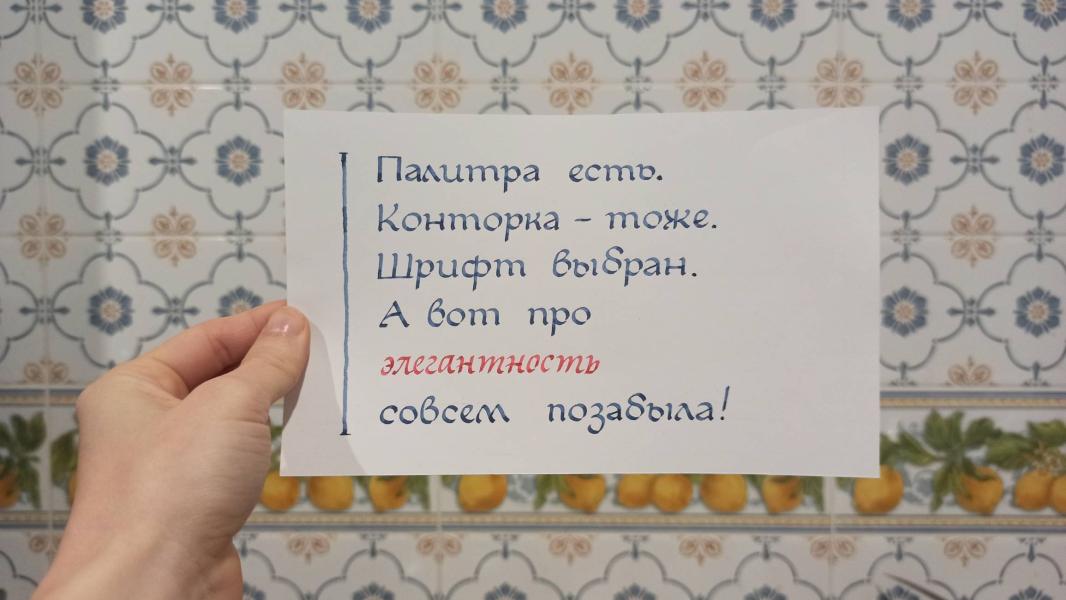 Палитра есть.
Конторка – тоже.
Шрифт выбран.
А вот про
элегантность
совсем позабыла!